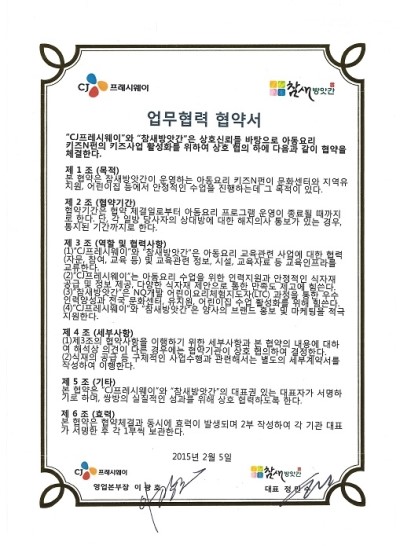 CJ 프레시웨이
참새방앗간
업무협력 협약서
“CJ프레시웨이”와 “참새방앗간”은 상호신뢰를 바탕으로 아동요리
키즈N펀의 키즈사업 활성화를 위하여 상호 협의 하에 다음과 같이 협약을
체결한다.
제 1 조 (목적)
본 협약은 참새방앗간이 운영하는 아동요리 키즈N펀이 문화센터와 지역유
치원, 어린이집 등에서 안정적인 수업을 진행하는데 그 목적이 있다.
제 2 조 (협약기간)
협약기간은 협약 체결일로부터 아동요리 프로그램 운영이 종료될 때까지
로 한다. 단, 각 일방 당사자의 상대방에 대한 해지의사 통보가 있는 경우,
통지된 기간까지로 한다.
제 3 조 (역할 및 협력사항)
(1)“CJ프레시웨이”와 “참새방앗간”은 아동요리 교육관련 사업에 대한 협력
(자문, 참여, 교육 등) 및 교육관련 정보, 시설, 교육자료 등 교육인프라를
교류한다.
(2)“CJ프레시웨이”는 아동요리 수업을 위한 인력지원과 안정적인 식자재
공급 및 정보 제공, 다양한 식자재 제안으로 통한 만족도 제고에 힘쓴다.
(3)“참새방앗간”은 NQ개발 어린이요리체험지도사(LTC) 과정을 통한 우수
인력양성과 전국 문화센터, 유치원, 어린이집 수업 활성화를 위해 힘쓴다.
(4)“CJ프레시웨이”와 “참새방앗간”은 양사의 브랜드 홍보 및 마케팅을 적극
지원한다.
제 4 조 (세부사항)
(1)제3조의 협약사항을 이행하기 위한 세부사항과 본 협약의 내용에 대하
여 해석상 의견이 다른 경우에는 협약기관이 상호 협의하여 결정한다.
(2)식재의 공급 등 구체적인 사업수행과 관련해서는 별도의 세부계약서를
작성하여 이행한다.
제 5 조 (기타)
본 협약은 “CJ프레시웨이”와 “참새방앗간”의 대표권 있는 대표자가 서명하
기로 하며, 쌍방의 실질적인 성과를 위해 상호 협력하도록 한다.
제 6 조 (효력)
본 협약은 협약체결과 동시에 효력이 발생되며 2부 작성하여 각 기관 대표
가 서명한 후 각 1부씩 보관한다.
2015년 2월 5일
CJ 프레시웨이
참새방앗간
영업본부장 이광호
대표 정민